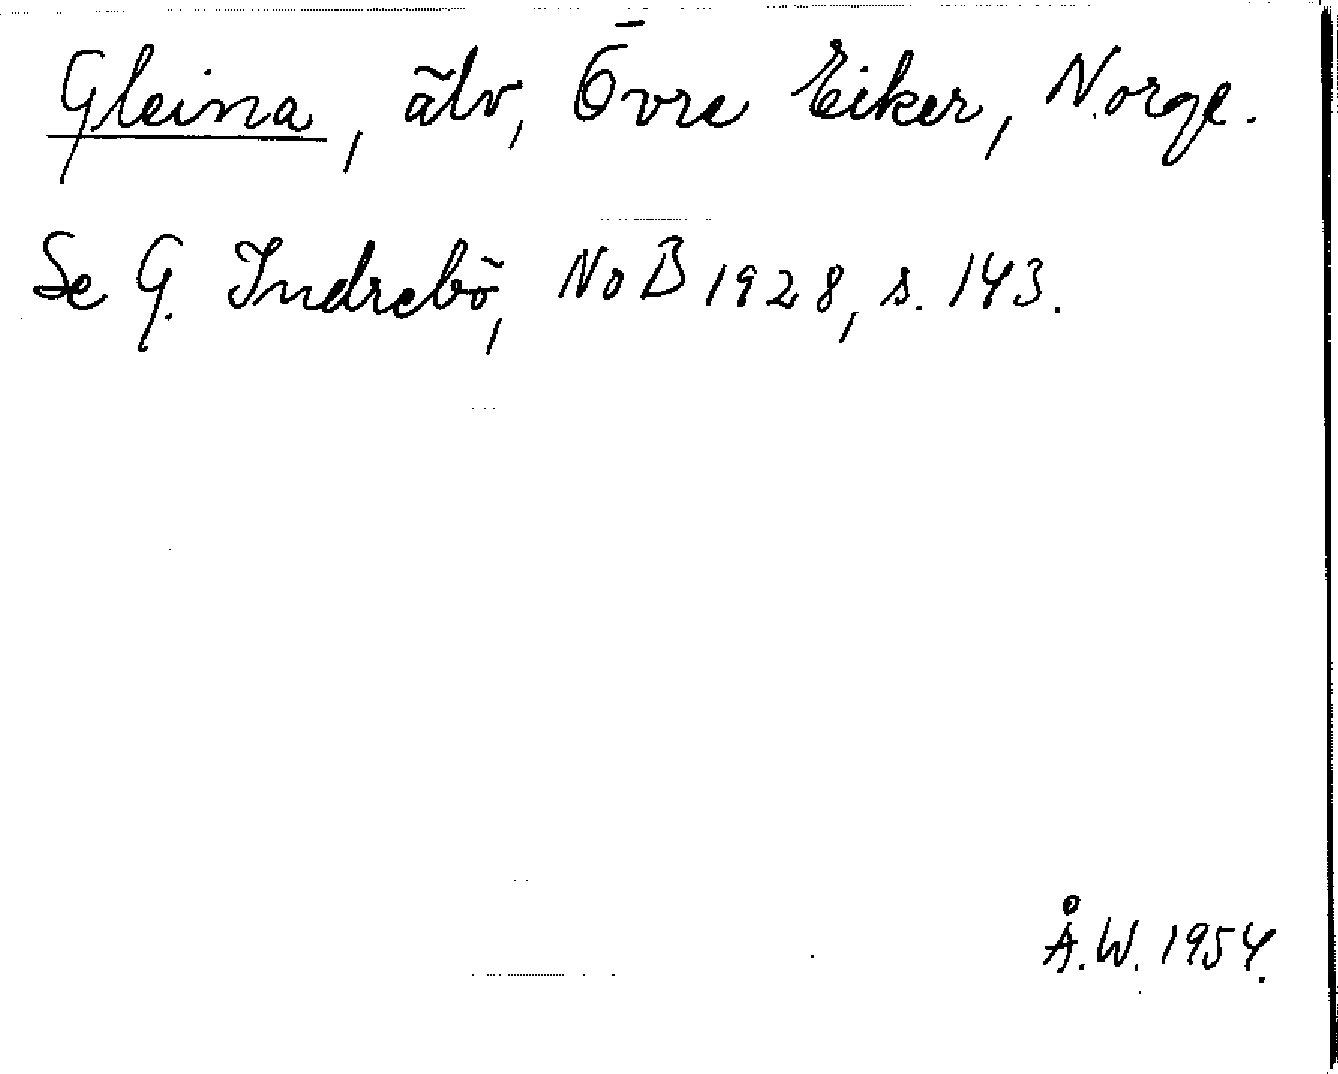 Gleina, älv, Övre Eiker, Norge.
Se G. Indrebö, NoB 1928, s. 143.
Å.W. 1954.